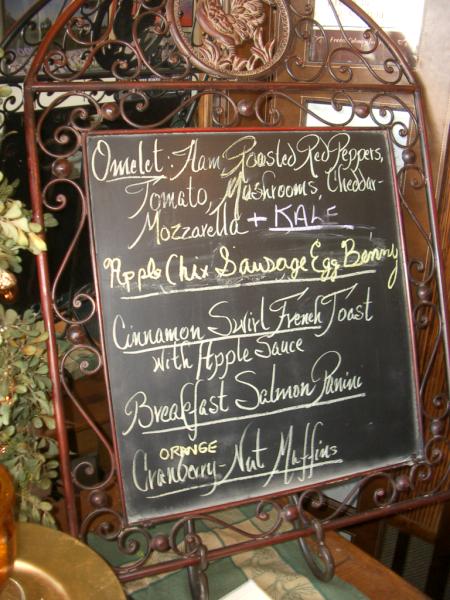 Omelet: Ham, Roasted Red Peppers,
Tomato, Mushrooms, Cheddar-
Mozzarella + KALE
Apple Chix Sausage Egg Benny
Cinnamon Swirl French Toast
with Apple Sauce
Breakfast Salmon Panini
ORANGE
Cranberry-Nut Muffins